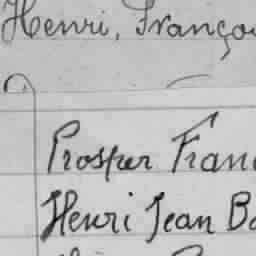 Henri, Franço
Prosper Fran
Henri Jean B